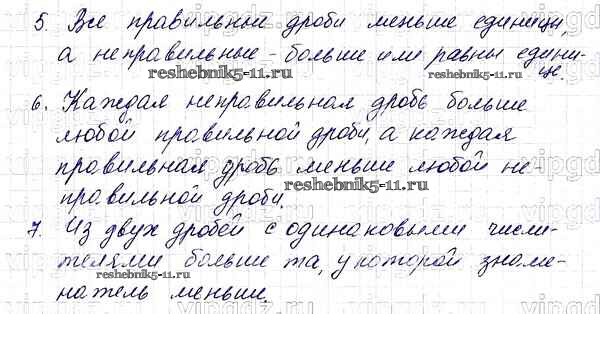 5. Все правильные дроби меньше единицы,
а неправильные - больше или равны едини-
це.
reshebnik5-11.ru
reshebnik5-11.ru
6. Каждая неправильная дробь больше
любой правильной дроби, а каждая
правильная дробь меньше любой не-
правильной дроби.
reshebnik5-11.ru
7. Из двух дробей с одинаковыми числи-
телями больше та, у которой знаме-
reshebnik5-11.ru
натель меньше.
reshebnik5-11.ru